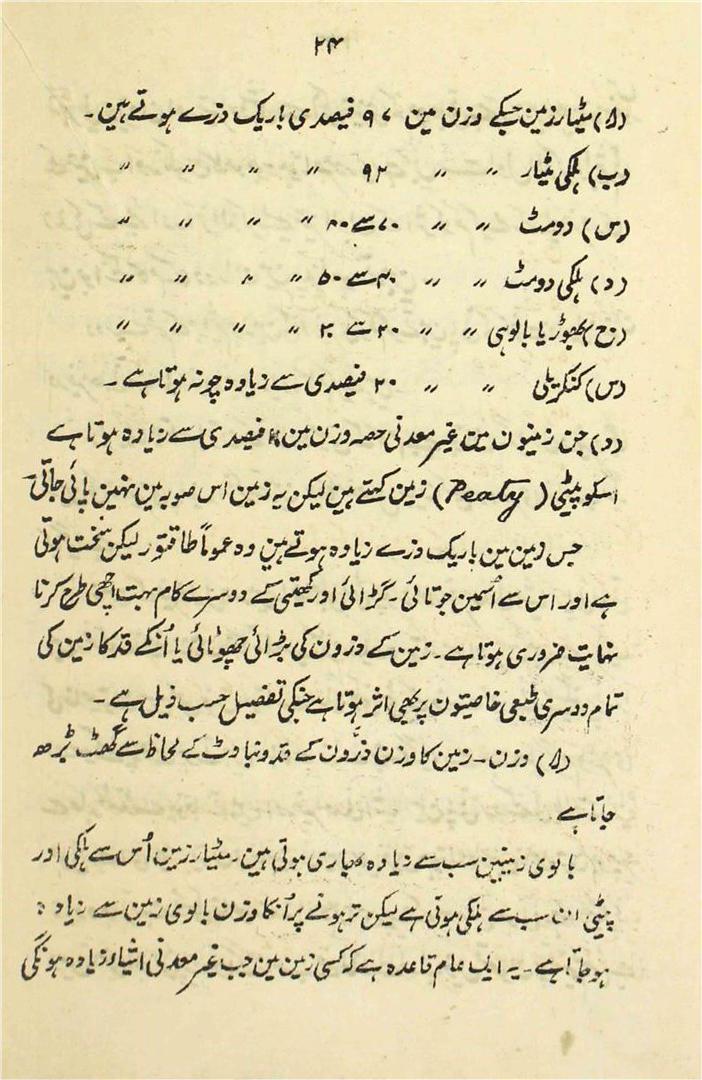 ۲۴
(ا) مٹیار زمین جسکے وزن مین ۹۷ فیصدی باریک ذرے ہوتے ہین۔
(ب) ہلکی مٹیار " " ۹۲ " " " "
(س) دومٹ " " ۷۰ سے ۸۰ " " " "
(د) ہلکی دومٹ " " ۴۰ سے ۵۰ " " " "
(ح) بھوڑ یا بالوہی " " ۲۰ سے ۳۰ " " " "
(س) کنکریلی " " ۲۰ فیصدی سے زیادہ چونہ ہوتا ہے۔
(د) جن زمینون مین غیر معدنی حصہ وزن مین فیصدی سے زیادہ ہوتا ہے
اسکو پیٹی (Peaty) زمین کہتے ہین لیکن یہ زمین اس صوبہ مین نہین پائی جاتی۔
جس زمین مین باریک ذرے زیادہ ہوتے ہین وہ عموماً طاقتور لیکن سخت ہوتی
ہے اور اس سے اُسمین جوتائی۔ گڑائی اور کھیتی کے دوسرے کام بہت اچھی طرح کرنا
نہایت ضروری ہوتا ہے۔ زمین کے ذرون کی بڑائی چھوٹائی یا اُنکے قد کا زمین کی
تمام دوسری طبعی خاصیتون پر بھی اثر ہوتا ہے جنکی تفصیل حسب ذیل ہے۔
(ا) وزن۔ زمین کا وزن ذرون کے قد و بناوٹ کے لحاظ سے گھٹ بڑھ
جاتا ہے۔
بالوی زمینین سب سے زیادہ بھاری ہوتی ہین۔ مٹیار زمین اُس سے ہلکی اور
پیٹی ان سب سے ہلکی ہوتی ہے لیکن تر ہونے پر اُنکا وزن بالوی زمین سے زیادہ
ہو جاتا ہے۔ یہ ایک عام قاعدہ ہے کہ کسی زمین مین جب غیر معدنی اشیاء زیادہ ہونگی